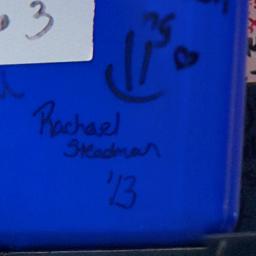 3
Rachael
Steadman
'13